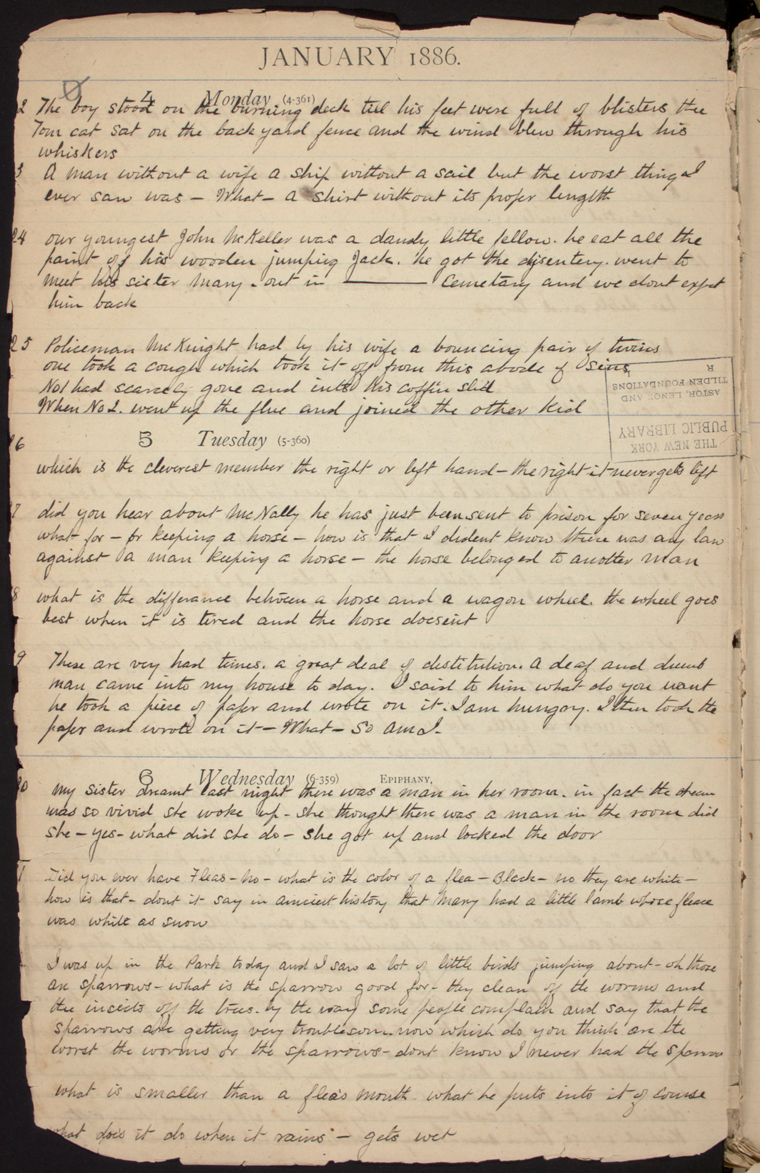 JANUARY 1886.
4 Monday (4-361)
2 The boy stood on the burning deck till his feet were full of blisters the
Tom cat sat on the back yard fence and the wind blew through his
whiskers
3 A man without a wife a ship without a sail but the worst thing I
ever saw was - What - a shirt without its proper length
24 our youngest John McKeller was a dandy little fellow. he eat all the
paint off his wooden jumping Jack. he got the disentery. went to
meet his sister Mary - out in ——— Cemetary and we dont expect
him back
25 Policeman McKnight had by his wife a bouncing pair of twins
one took a cough which took it off from this abode of Sins
No1 had scarcely gone and into his coffin slid
When No 2. went up the flue and joined the other kid
THE NEW YORK
PUBLIC LIBRARY
ASTOR, LENOX AND
TILDEN FOUNDATIONS
R
5 Tuesday (5-360)
26 which is the cleverest member the right or left hand - the right it never gets left
7 did you hear about McNally he has just been sent to prison for seven years
what for - for keeping a horse - how is that I dident know there was any law
against a man keeping a horse - the horse belonged to another man
8 what is the differance between a horse and a wagon wheel. the wheel goes
best when it is tired and the horse doesent
9 These are very hard times. a great deal of distitution. A deaf and dumb
man came into my house to day. I said to him what do you want
he took a piece of paper and wrote on it. I am hungory. I then took the
paper and wrote on it - What - So am I.
6 Wednesday (6-359) EPIPHANY.
30 my sister dreamt last night there was a man in her room. in fact the dream
was so vivid she woke up - she thought there was a man in the room did
she - yes - what did she do - she got up and locked the door
1 Did you ever have Fleas - No - what is the color of a flea - Black - no they are white -
how is that - dont it say in ancient history that Mary had a little lamb whose fleece
was white as snow
I was up in the Park today and I saw a lot of little birds jumping about - oh those
are sparrows - what is the sparrow good for - they clean off the worms and
the insects off the trees. by the way some people complain and say that the
sparrows are getting very troublesom. now which do you think are the
worst the worms or the sparrows - dont know I never had the sparrows
what is smaller than a flea's mouth. what he puts into it of course
what does it do when it rains - gets wet